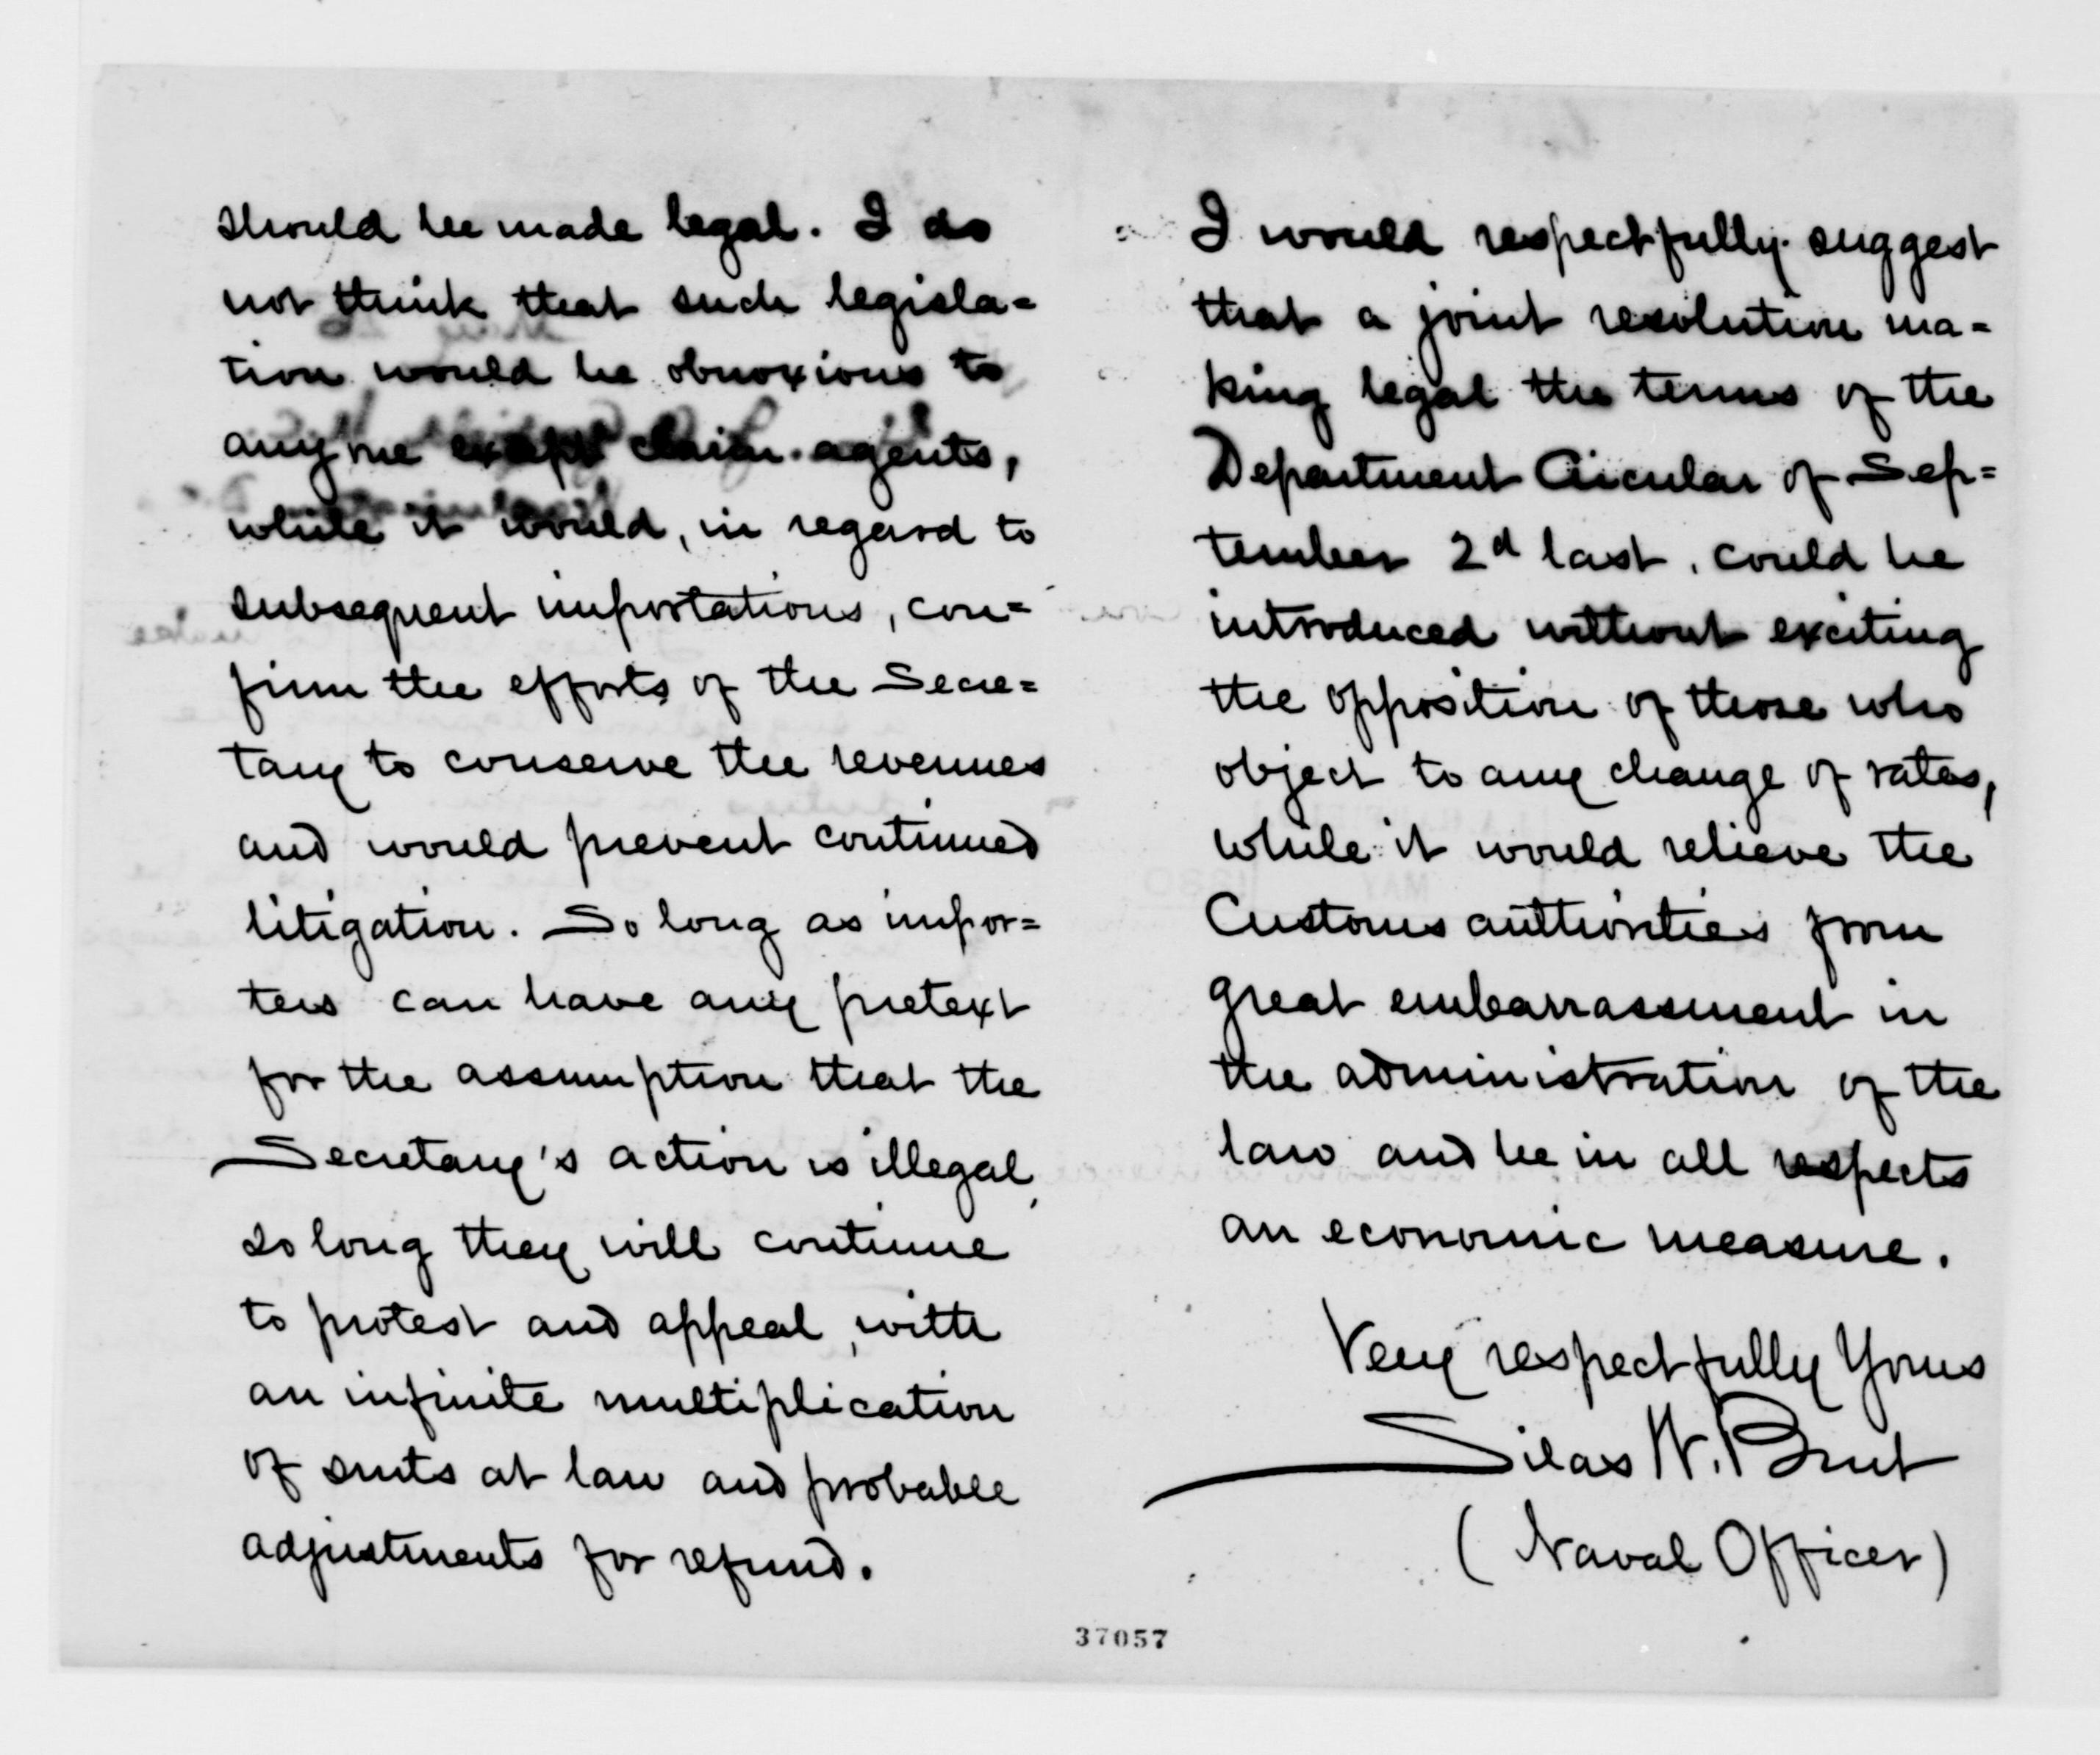 should be made legal. I do
not think that such legisla=
tion would be obnoxious to
anyone except claim-agents,
while it would, in regard to
subsequent importations, con=
firm the efforts of the Secre=
tary to conserve the revenues
and would prevent continued
litigation. So long as impor=
ters can have any pretext
for the assumption that the
Secretary's action is illegal,
so long they will continue
to protest and appeal, with
an infinite multiplication
of suits at law and probable
adjustments for refund.
I would respectfully suggest
that a joint resolution ma=
king legal the terms of the
Department Circular of Sep=
tember 2d last, could be
introduced without exciting
the opposition of those who
object to any change of rates,
while it would relieve the
Customs authorities from
great embarrassment in
the administration of the
law and be in all respects
an economic measure.
Very respectfully Yours
Silas W. Burt
(Naval Officer)
37057